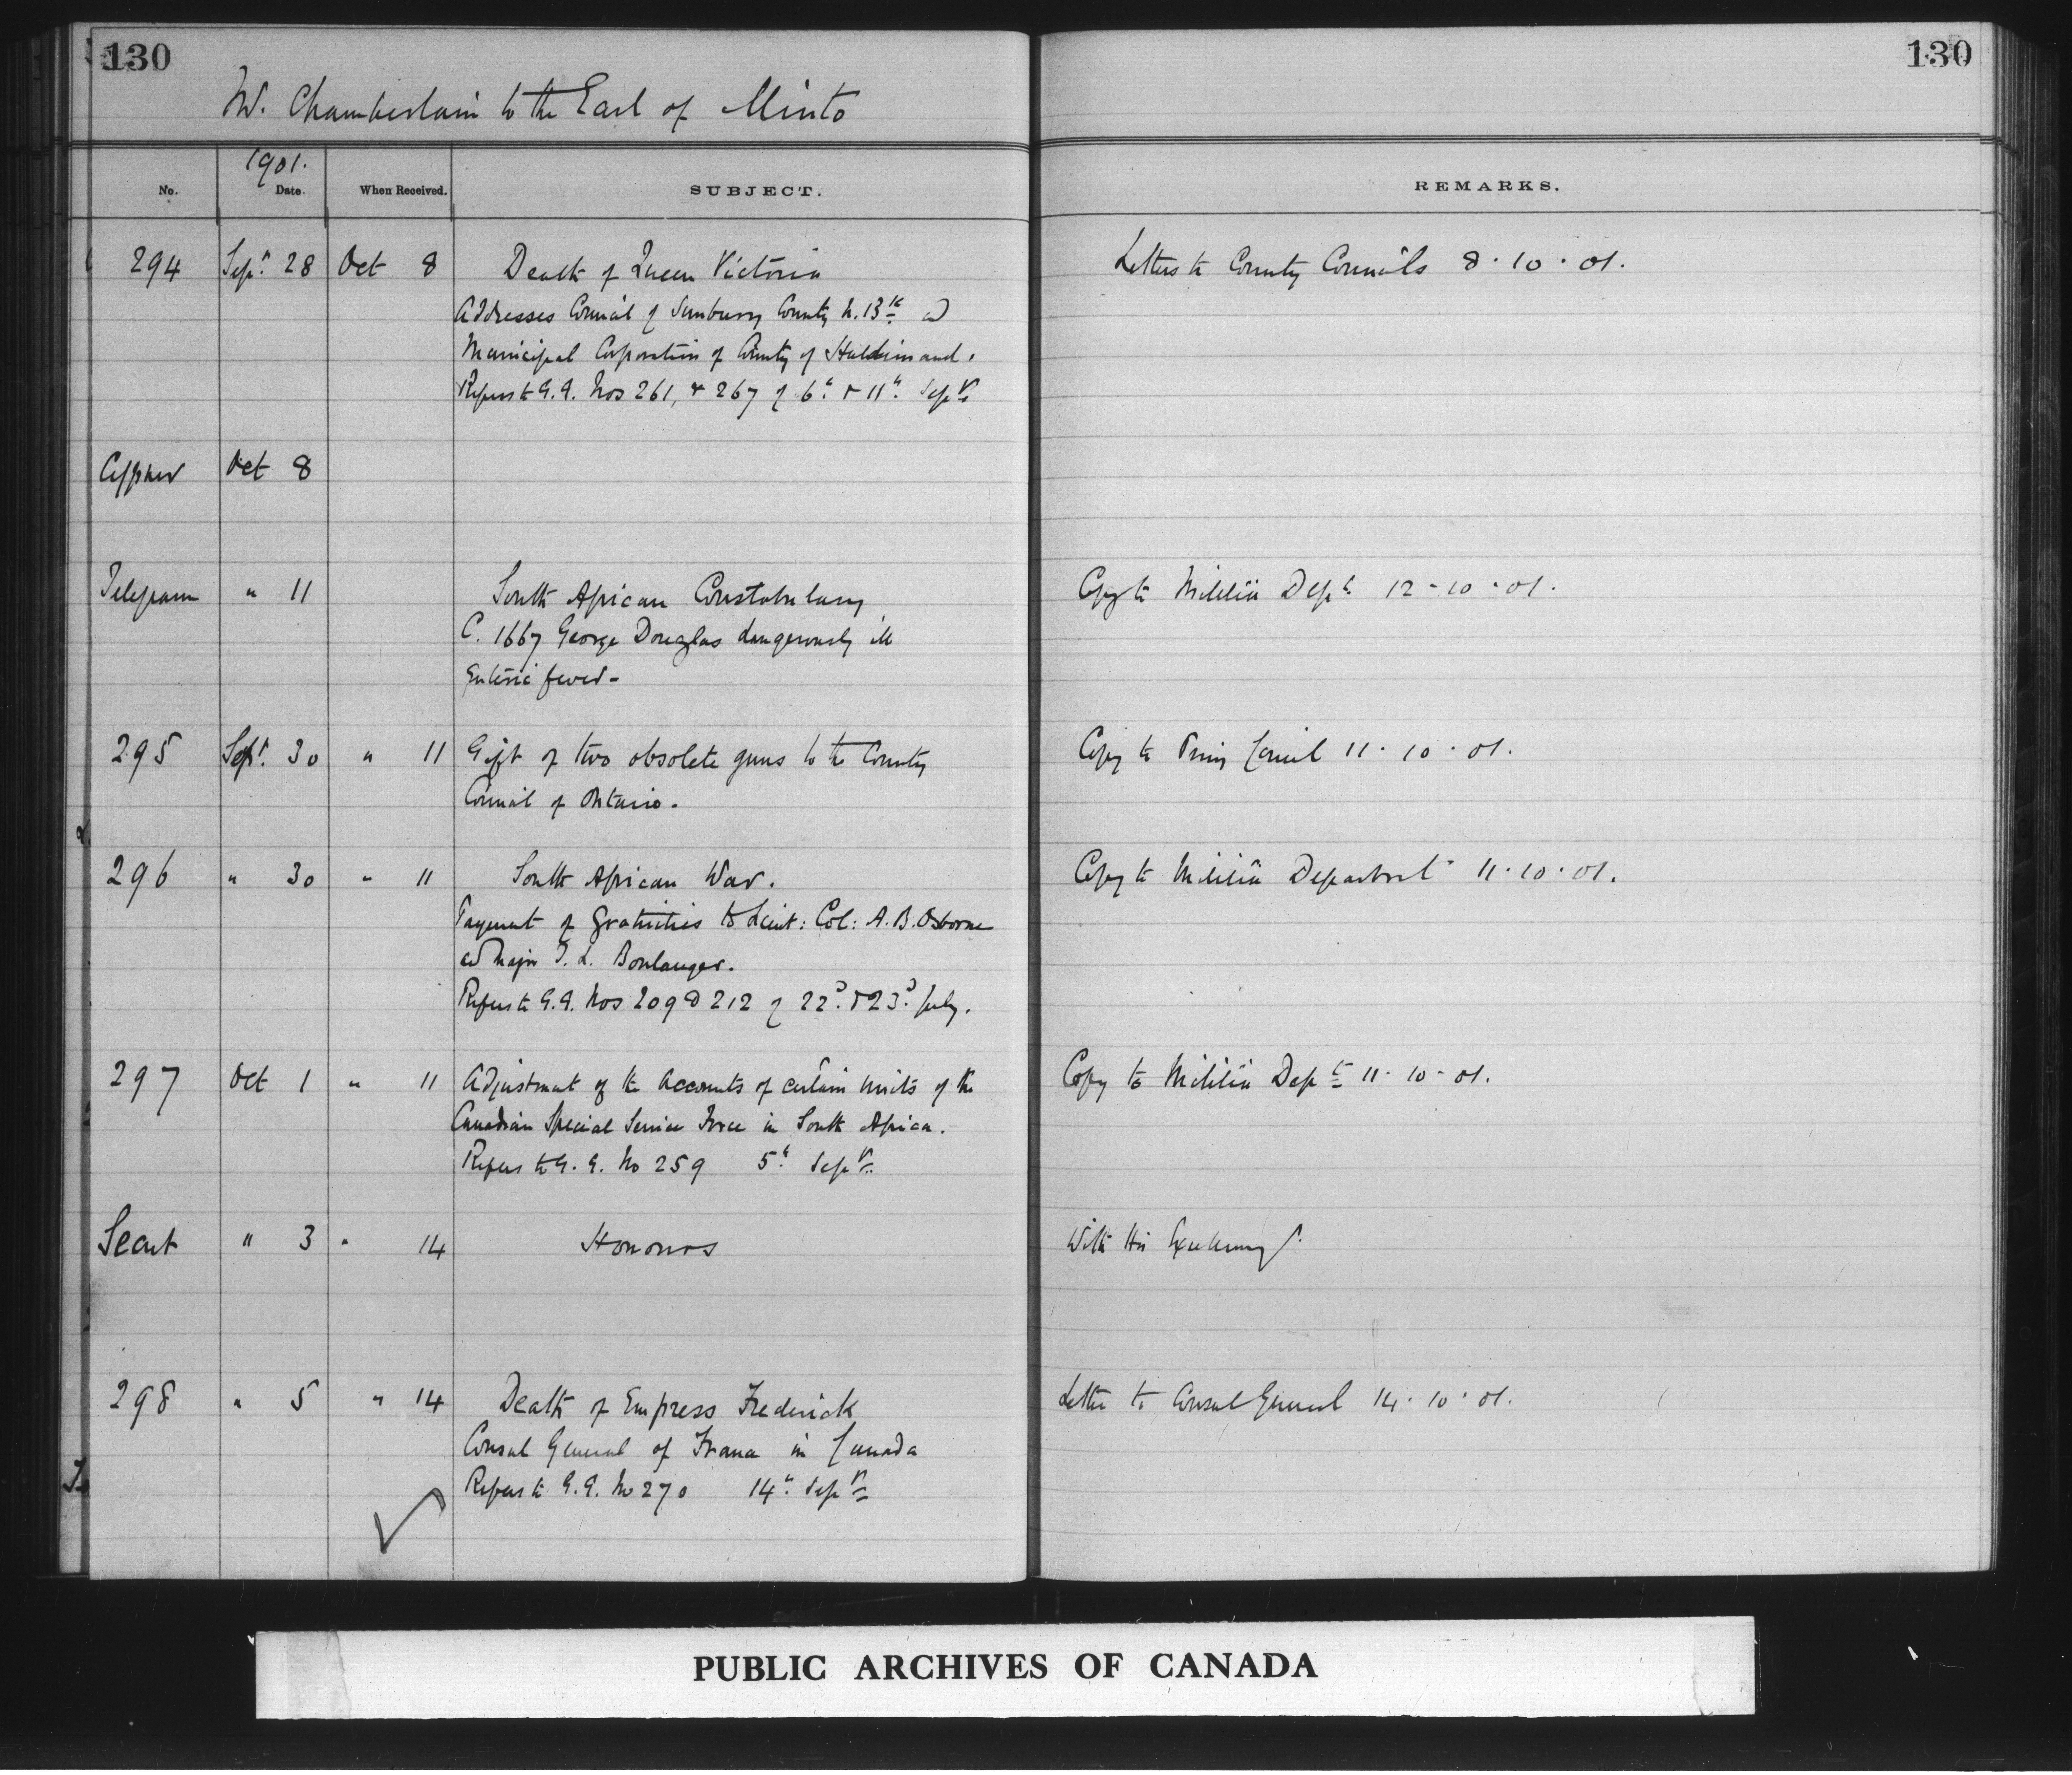 130
130
Mr. Chamberlain to the Earl of Minto
1901.
No. Date. When Received. SUBJECT. REMARKS.
294 Sept. 28 Oct 8 Death of Queen Victoria Letters to County Councils 8·10·01.
Addresses Council of Sunbury County N.B. &
Municipal Corporation of County of Haldimand.
Refers to G.G. Nos 261, & 267 of 6th & 11th Septr
Cypher Oct 8
Telegram " 11 South African Constabulary Copy to Militia Dept 12-10-01.
C. 1667 George Douglas dangerously ill
Enteric fever-
295 Sept. 30 " 11 Gift of two obsolete guns to the County Copy to Privy Council 11·10·01.
Council of Ontario.
296 " 30 " 11 South African War. Copy to Militia Department 11·10·01.
Payment of Gratuities to Lieut: Col: A.B. Osborne
and Major J. L. Boulanger.
Refers to G.G. Nos 209 & 212 of 22d. & 23d. July.
297 Oct 1 " 11 Adjustment of the Accounts of certain units of the Copy to Militia Dept 11·10·01.
Canadian Special Service Force in South Africa.
Refers to G.G. No 259 5th Septr
Secret " 3 " 14 Honours With His Excellency
298 " 5 " 14 Death of Empress Frederick Letter to Consul General 14·10·01.
Consul General of France in Canada
Refers to G.G. No 270 14th Septr
PUBLIC ARCHIVES OF CANADA